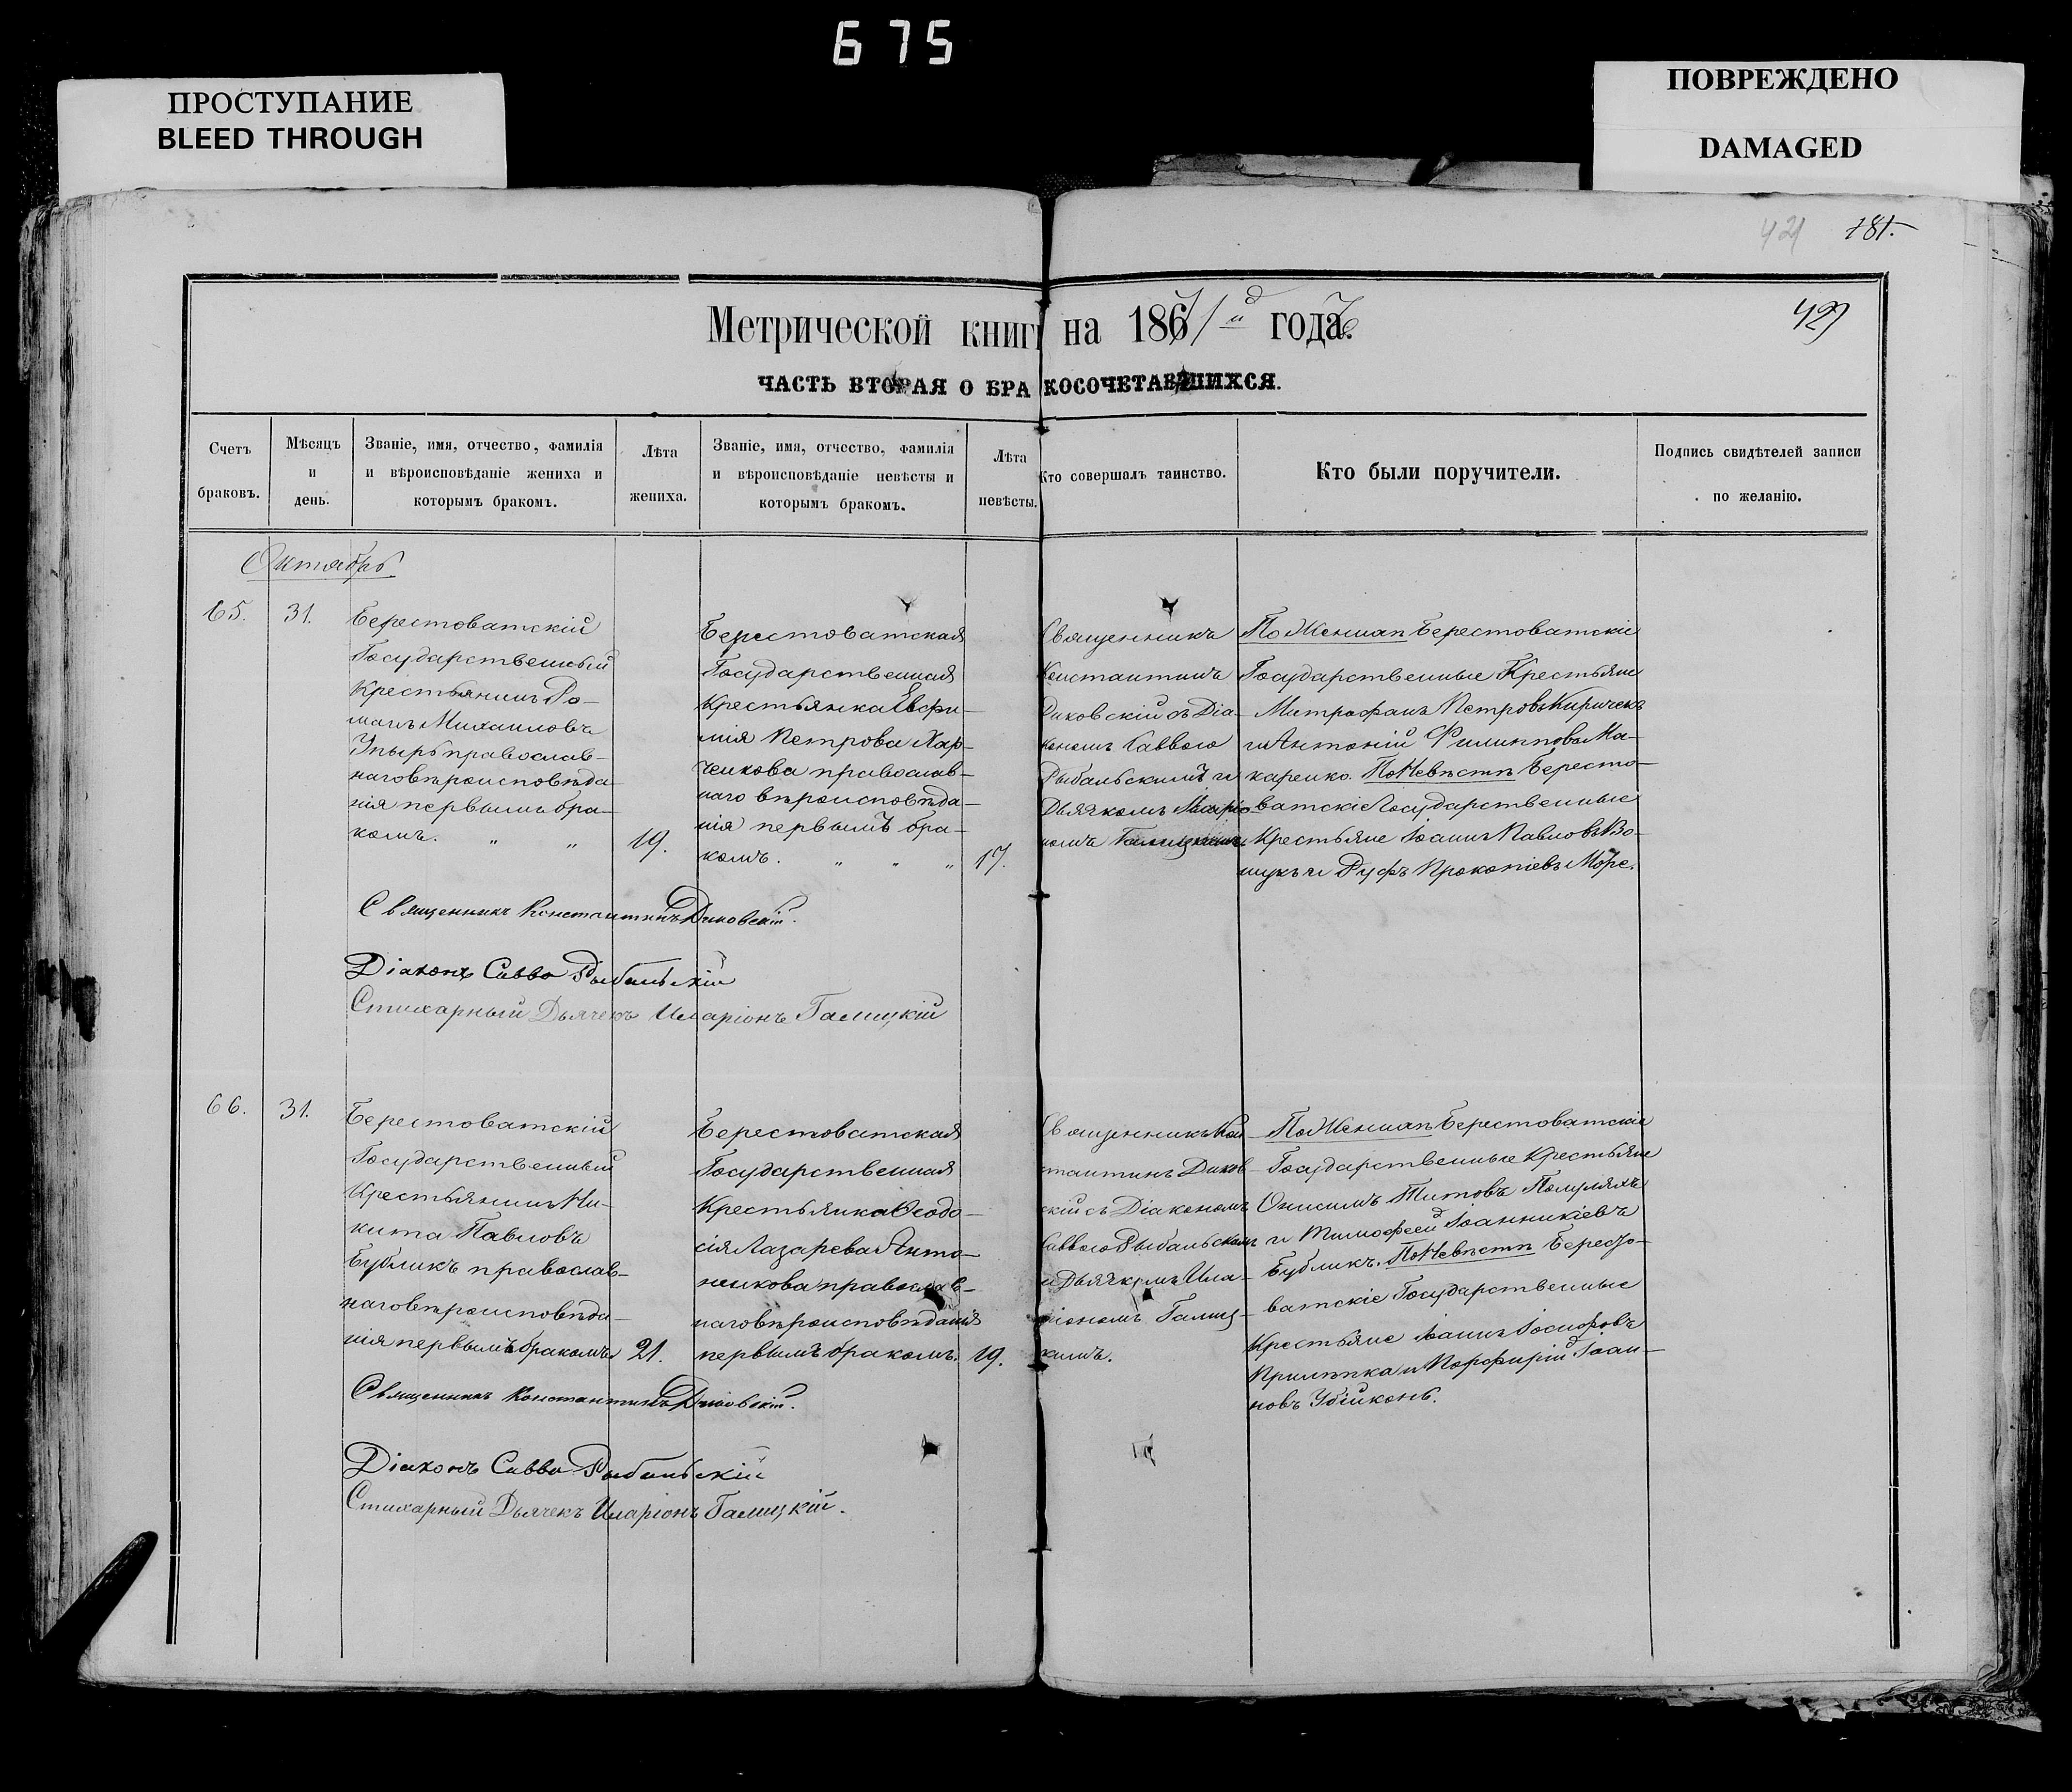 675
ПРОСТУПАНИЕ
BLEED THROUGH
ПОВРЕЖДЕНО
DAMAGED
421 181.
Метрической книги на 1871й годъ.
429
ЧАСТЬ ВТОРАЯ О БРАКОСОЧЕТАВШИХСЯ.
Счетъ браковъ.
Мѣсяцъ и день.
Званіе, имя, отчество, фамилія
и вѣроисповѣданіе жениха и
которымъ бракомъ.
Лѣта жениха.
Званіе, имя, отчество, фамилія
и вѣроисповѣданіе невѣсты и
которымъ бракомъ.
Лѣта невѣсты.
Кто совершалъ таинство.
Кто были поручители.
Подпись свидѣтелей записи
по желанію.
Октябрь
65.
31.
Берестоватскій
Государственный
Крестьянинъ Ро-
манъ Михаиловъ
Упырь православ-
наго вѣроисповѣда-
нія первымъ бра-
комъ. " "
19.
Берестоватская
Государственная
Крестьянка Евфи-
мія Петрова Хар-
ченкова православ-
наго вѣроисповѣда-
нія первымъ бра-
комъ. " " "
17.
Священникъ
Константинъ
Диковскій съ Діа-
кономъ Саввою
Рыбальскимъ и
Дьячкомъ Иларіо-
номъ Галицкимъ
По Женихѣ Берестоватскіе
Государственные Крестьяне
Митрофанъ Петровъ Киричекъ
и Антоній Филипповъ Ма-
каренко. По Невѣстѣ Бересто-
ватскіе Государственные
Крестьяне Іоаннъ Павловъ Во-
щукъ и Руфъ Прокопіевъ Море.
Священникъ Константинъ Диковскій.
Діаконъ Савва Рыбальскій
Стихарный Дьячекъ Иларіонъ Галицкій
66.
31.
Берестоватскій
Государственный
Крестьянинъ Ни-
кита Павловъ
Бубликъ православ-
наго вѣроисповѣда-
нія первымъ бракомъ.
21.
Берестоватская
Государственная
Крестьянка Ѳеодо-
сія Лазарева Анто-
ненкова православ-
наго вѣроисповѣданія
первымъ бракомъ.
19.
Священникъ Кон-
стантинъ Диков-
скій съ Діакономъ
Саввою Рыбальскимъ
и Дьячкомъ Ила-
ріономъ Галиц-
кимъ.
По Женихѣ Берестоватскіе
Государственные Крестьяне
Онисимъ Титовъ Полуляхъ
и Тимофей Іоанникіевъ
Бубликъ. По Невѣстѣ Бересто-
ватскіе Государственные
Крестьяне Іоаннъ Іосифовъ
Прилѣпка и Порфирій Іоан-
новъ Убійконь.
Священникъ Константинъ Диковскій.
Діаконъ Савва Рыбальскій
Стихарный Дьячекъ Иларіонъ Галицкій.